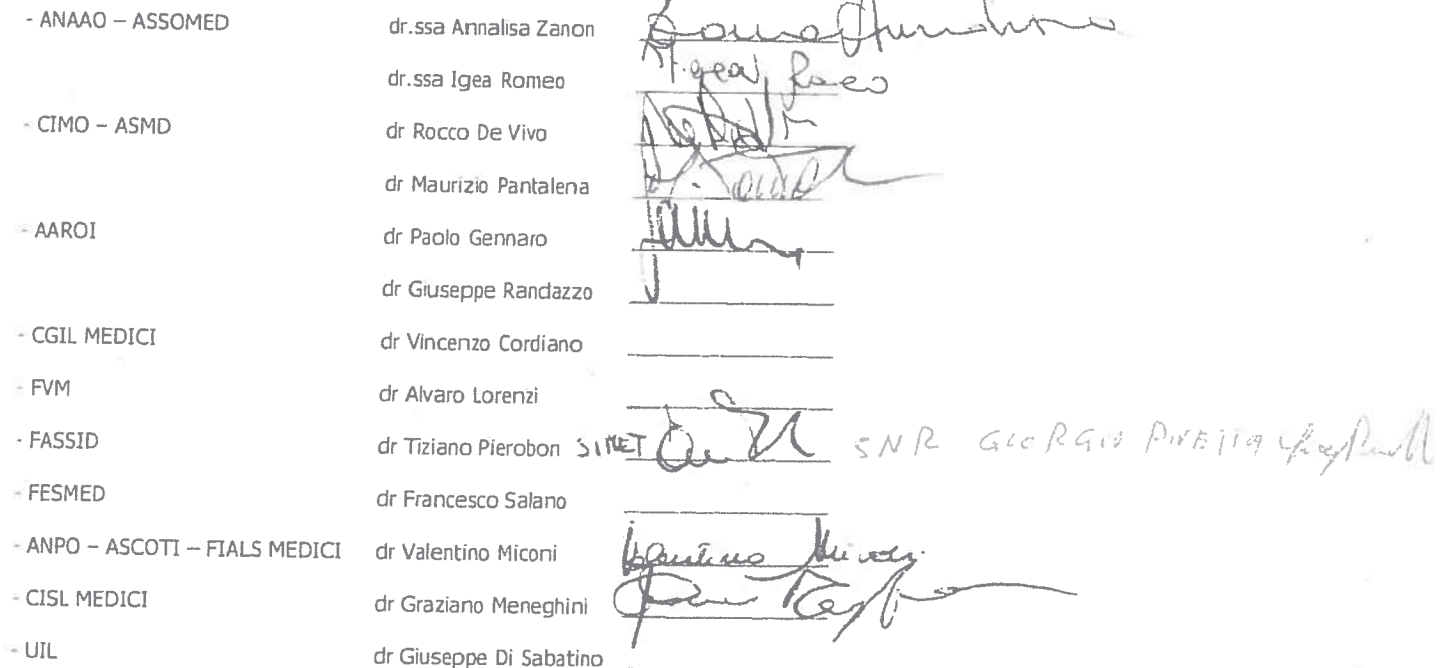 - ANAAO – ASSOMED dr.ssa Annalisa Zanon
dr.ssa Igea Romeo Igea
- CIMO – ASMD dr Rocco De Vivo
dr Maurizio Pantalena
- AAROI dr Paolo Gennaro
dr Giuseppe Randazzo
- CGIL MEDICI dr Vincenzo Cordiano
- FVM dr Alvaro Lorenzi
- FASSID dr Tiziano Pierobon SIMET SNR GIORGIO
- FESMED dr Francesco Salano
- ANPO – ASCOTI – FIALS MEDICI dr Valentino Miconi Valentino Miconi
- CISL MEDICI dr Graziano Meneghini
- UIL dr Giuseppe Di Sabatino